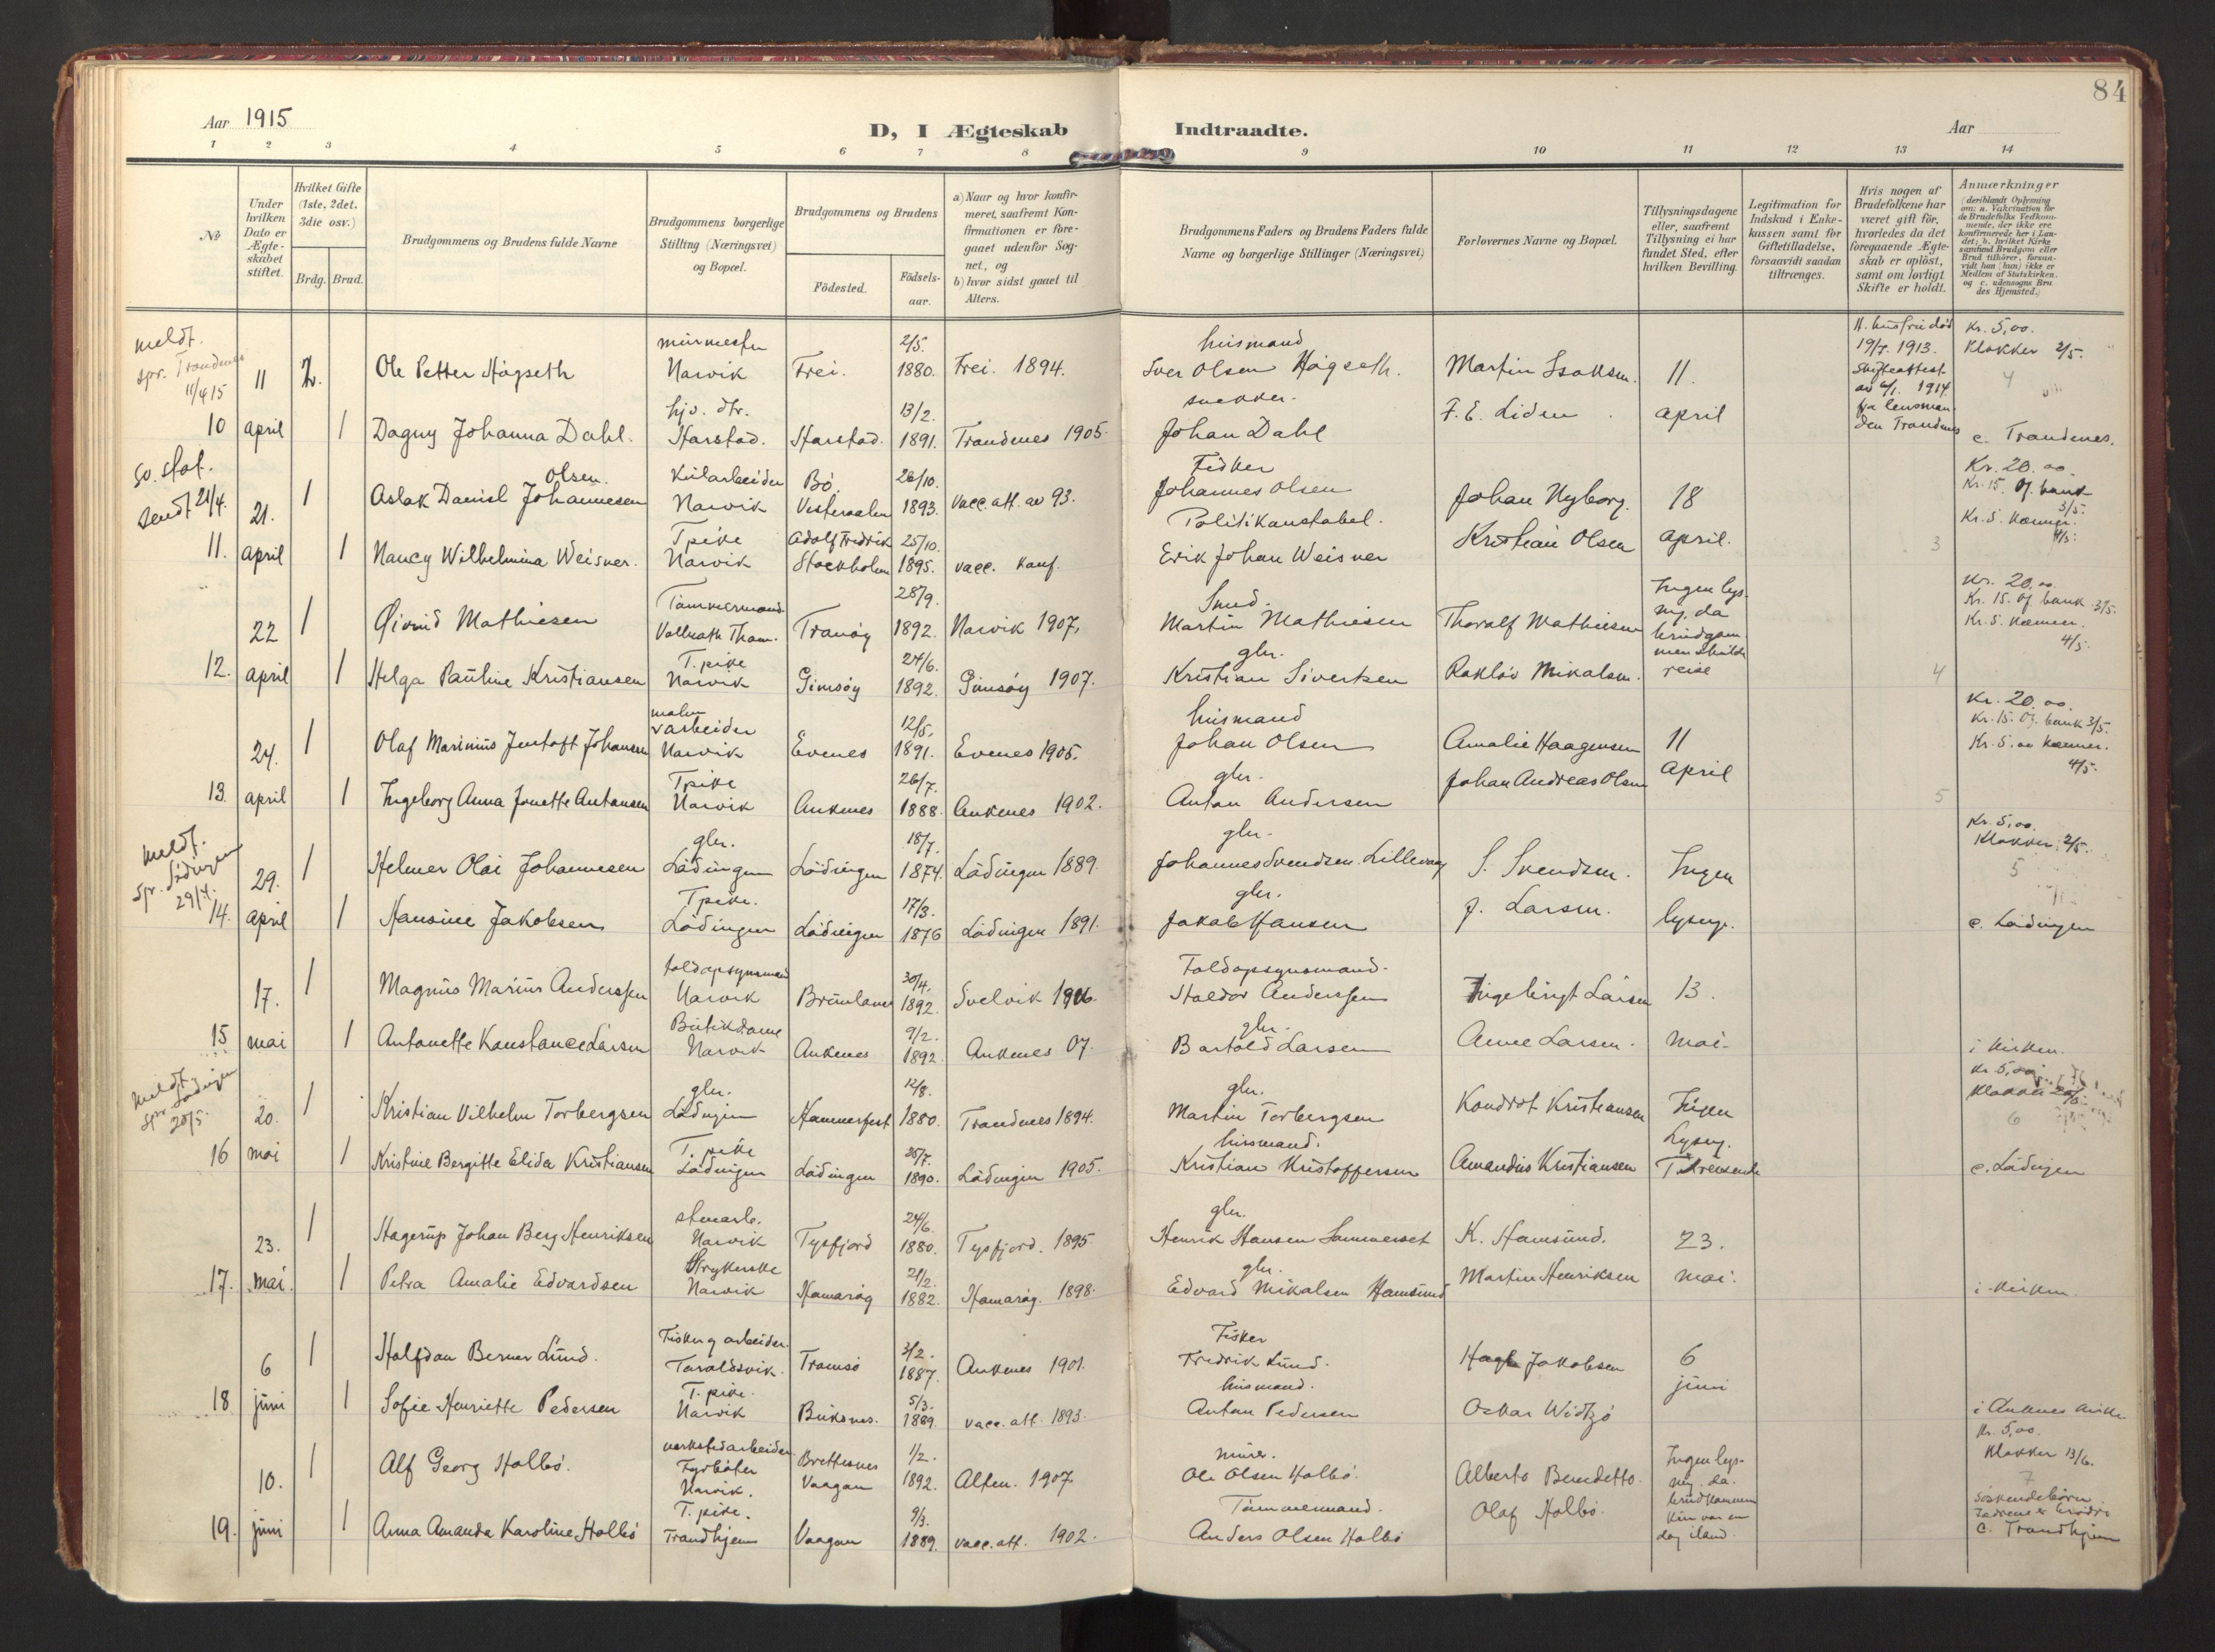 84
Aar 1915
D, I Ægteskab Indtraadte.
Aar
1 2 3 4 5 6 7 8 9 10 11 12 13 14
No
Under hvilken Dato er Ægte-skabet stiftet.
Hvilket Gifte (1ste, 2det, 3die osv.)
Brdg. Brud.
Brudgommens og Brudens fulde Navne
Brudgommens borgerlige Stilling (Næringsvei) og Bopæl.
Brudgommens og Brudens
Födested.
Födsels-aar.
a) Naar og hvor konfir-meret, saafremt Kon-firmationen er fore-gaaet udenfor Sog-net, og
b) hvor sidst gaaet til Alters.
Brudgommens Faders og Brudens Faders fulde Navne og borgerlige Stillinger (Næringsvei)
Forlovernes Navne og Bopæl.
Tillysningsdagene eller, saafremt Tillysning ei har fundet Sted, efter hvilken Bevilling.
Legitimation for Indskud i Enke-kassen samt for Giftetilladelse, forsaavidt saadan tiltrænges.
Hvis nogen af Brudefolkene har været gift för, hvorledes da det foregaaende Ægte-skab er oplöst, samt om lovligt Skifte er holdt.
Anmærkninger (deriblandt Oplysning om: a. Vakcination for de Brudefolks Vedkom-mende, der ikke ere konfirmerede her i Lan-det; b. hvilket Kirke samfund Brudgom eller Brud tilhörer, forsaa-vidt han (hun) ikke er Medlem af Statskirken, og c. udensogns Bru des Hjemsted.)
meldt. spr. Trondenes 11/4 15
murmester 2/5. husmand
11 2. Ole Petter Hagseth Narvik Frei. 1880. Frei. 1894. Iver Olsen Hagseth. Martin Isaksen. 11.
hjv. dtr. 13/2. snekker. F. E. Liden
10 april 1 Dagny Johanna Dahl. Harstad. Harstad. 1891. Trondenes 1905. Johan Dahl april
H. hustru död 19/7. 1913. Skifteattest av 6/1. 1914 fra lensman-den Trondenes
Kr. 5,00. Klokker 2/5. 4 c. Trondenes.
sv. stat. sendt 21/4.
Olsen. Kularbeider Bö 26/10. Fisker
21. 1 Aslak Daniel Johannesen Narvik Vesteraalen 1893. Vacc. att. av 93. Johannes Olsen Johan Nyborg. 18
T. pike Adolf Fredrik 25/10. Politikonstabel.
11. april 1 Nancy Wilhelmina Weisner. Narvik Stockholm 1895. vacc. konf. Erik Johan Weisner Kristian Olsen april.
3 Kr. 20.00. Kr. 15. Of. bank 3/5. Kr. 5. Kæmner. 4/5.
Tømmermand 28/9. Smed.
22 1 Øivind Mathiesen Vallnath Tham. Tranöy 1892. Narvik 1907. Martin Mathiesen Thoralf Mathiesen
T. pike 24/6. gbr.
12. april 1 Helga Pauline Kristiansen Narvik Gimsöy 1892. Gimsöy 1907. Kristian Sivertsen Mikalsen.
Ingen lys-ning, da brudgom-men skulde reise
4 Kr. 20.00. Kr. 15. Of. bank 3/5. Kr. 5. Kæmner. 4/5.
malm varbeider 12/5. husmand
24. 1 Olaf Marinius Jentoft Johansen Narvik Evenes 1891. Evenes 1905. Johan Olsen Amalie Haagensen 11
T. pike 26/7. gbr.
13. april 1 Ingeborg Anna Jonette Antonsen Narvik Ankenes 1888. Ankenes 1902. Anton Andersen Johan Andreas Olsen april
5 Kr. 20.00. Kr. 15. Of. bank 3/5. Kr. 5.00 Kæmner. 4/5.
meldt. spr. Lödingen 29/4.
gbr. 18/7. gbr.
29. 1 Helmer Olai Johannesen Lödingen Lödingen 1874. Lödingen 1889. Johannes Svendsen Lillevaag S. Svendsen. Ingen
T. pike. 17/3. gbr.
14. april 1 Hansine Jakobsen Lödingen Lödingen 1876 Lödingen 1891. Jakob Hansen J. Larsen. lysning.
Kr. 5,00. Klokker 2/5. 5 c. Lödingen
toldopsynsmand 30/4. Toldopsynsmand.
17. 1 Magnus Marius Anderssen Narvik Brunlanes 1892. Svelvik 1906. Haldor Anderssen Ingebrigt Larsen 13.
Butikdame 9/2. gbr.
15 mai 1 Antonette Konstance Larsen Narvik Ankenes 1892 Ankenes 07. Bartold Larsen Anne Larsen. mai.
i kirken.
meldt. spr. Lödingen 20/5.
gbr. 12/8. gbr.
20. 1 Kristian Vilhelm Torbergsen Lödingen Hammerfest 1880. Trondenes 1894. Martin Torbergsen Kondrat Kristiansen Ingen
T. pike 25/7. husmand.
16 mai 1 Kristine Bergitte Elida Kristiansen Lödingen Lödingen 1890. Lödingen 1905. Kristian Kristoffersen Amandus Kristiansen Lysng.
Kr. 5,00 Klokker 20/5. 6 c. Lödingen
stuearb. 24/6 gbr.
23. 1 Hagerup Johan Berg Henriksen Narvik Tysfjord 1880. Tysfjord. 1895 Henrik Hansen Sommerset K. Hamsund. 23.
Strykerske 21/2. gbr.
17. mai. 1 Petra Amalie Edvardsen Narvik Hamaröy 1882. Hamaröy. 1898. Edvard Mikalsen Hamsund Martin Henriksen mai.
i kirken.
Fisker og arbeider. 3/2. Fisker
6 1 Halfdan Berner Lund. Taraldsvik. Tromsö 1887. Ankenes 1901. Fredrik Lund. Jakobsen 6
T. pike. 5/3. husmand.
18 juni 1 Sofie Henriette Pedersen Narvik Buksnes. 1889. vacc. att. 1893. Anton Pedersen Oskar Widtzö juni
i Ankenes kirke
verkstedarbeider. Brettesnes 1/2. murer.
10. 1 Alf Georg Holbö. Fyrböter Narvik. Vaagan 1892. Alten. 1907. Ole Olsen Holbö. Alberto Benedetto.
T. pike. 9/3. Tömmermand.
19. juni 1 Anna Amanda Karoline Holbö Trondhjem Vaagan 1889. vacc. att. 1902. Anders Olsen Holbö Olaf Holbö.
Ingen lys-ning. da. brudkommen kun var en dag iland.
Kr. 5,00. Klokker 13/6. 7 Söskendebörn c. Trondhjem